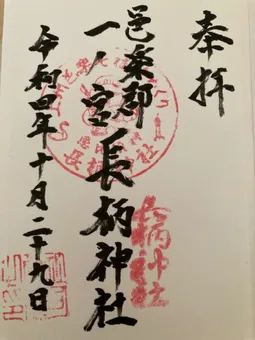 奉拝
邑楽郡
一ノ宮長柄神社
令和四年十月二十九日
長柄神社